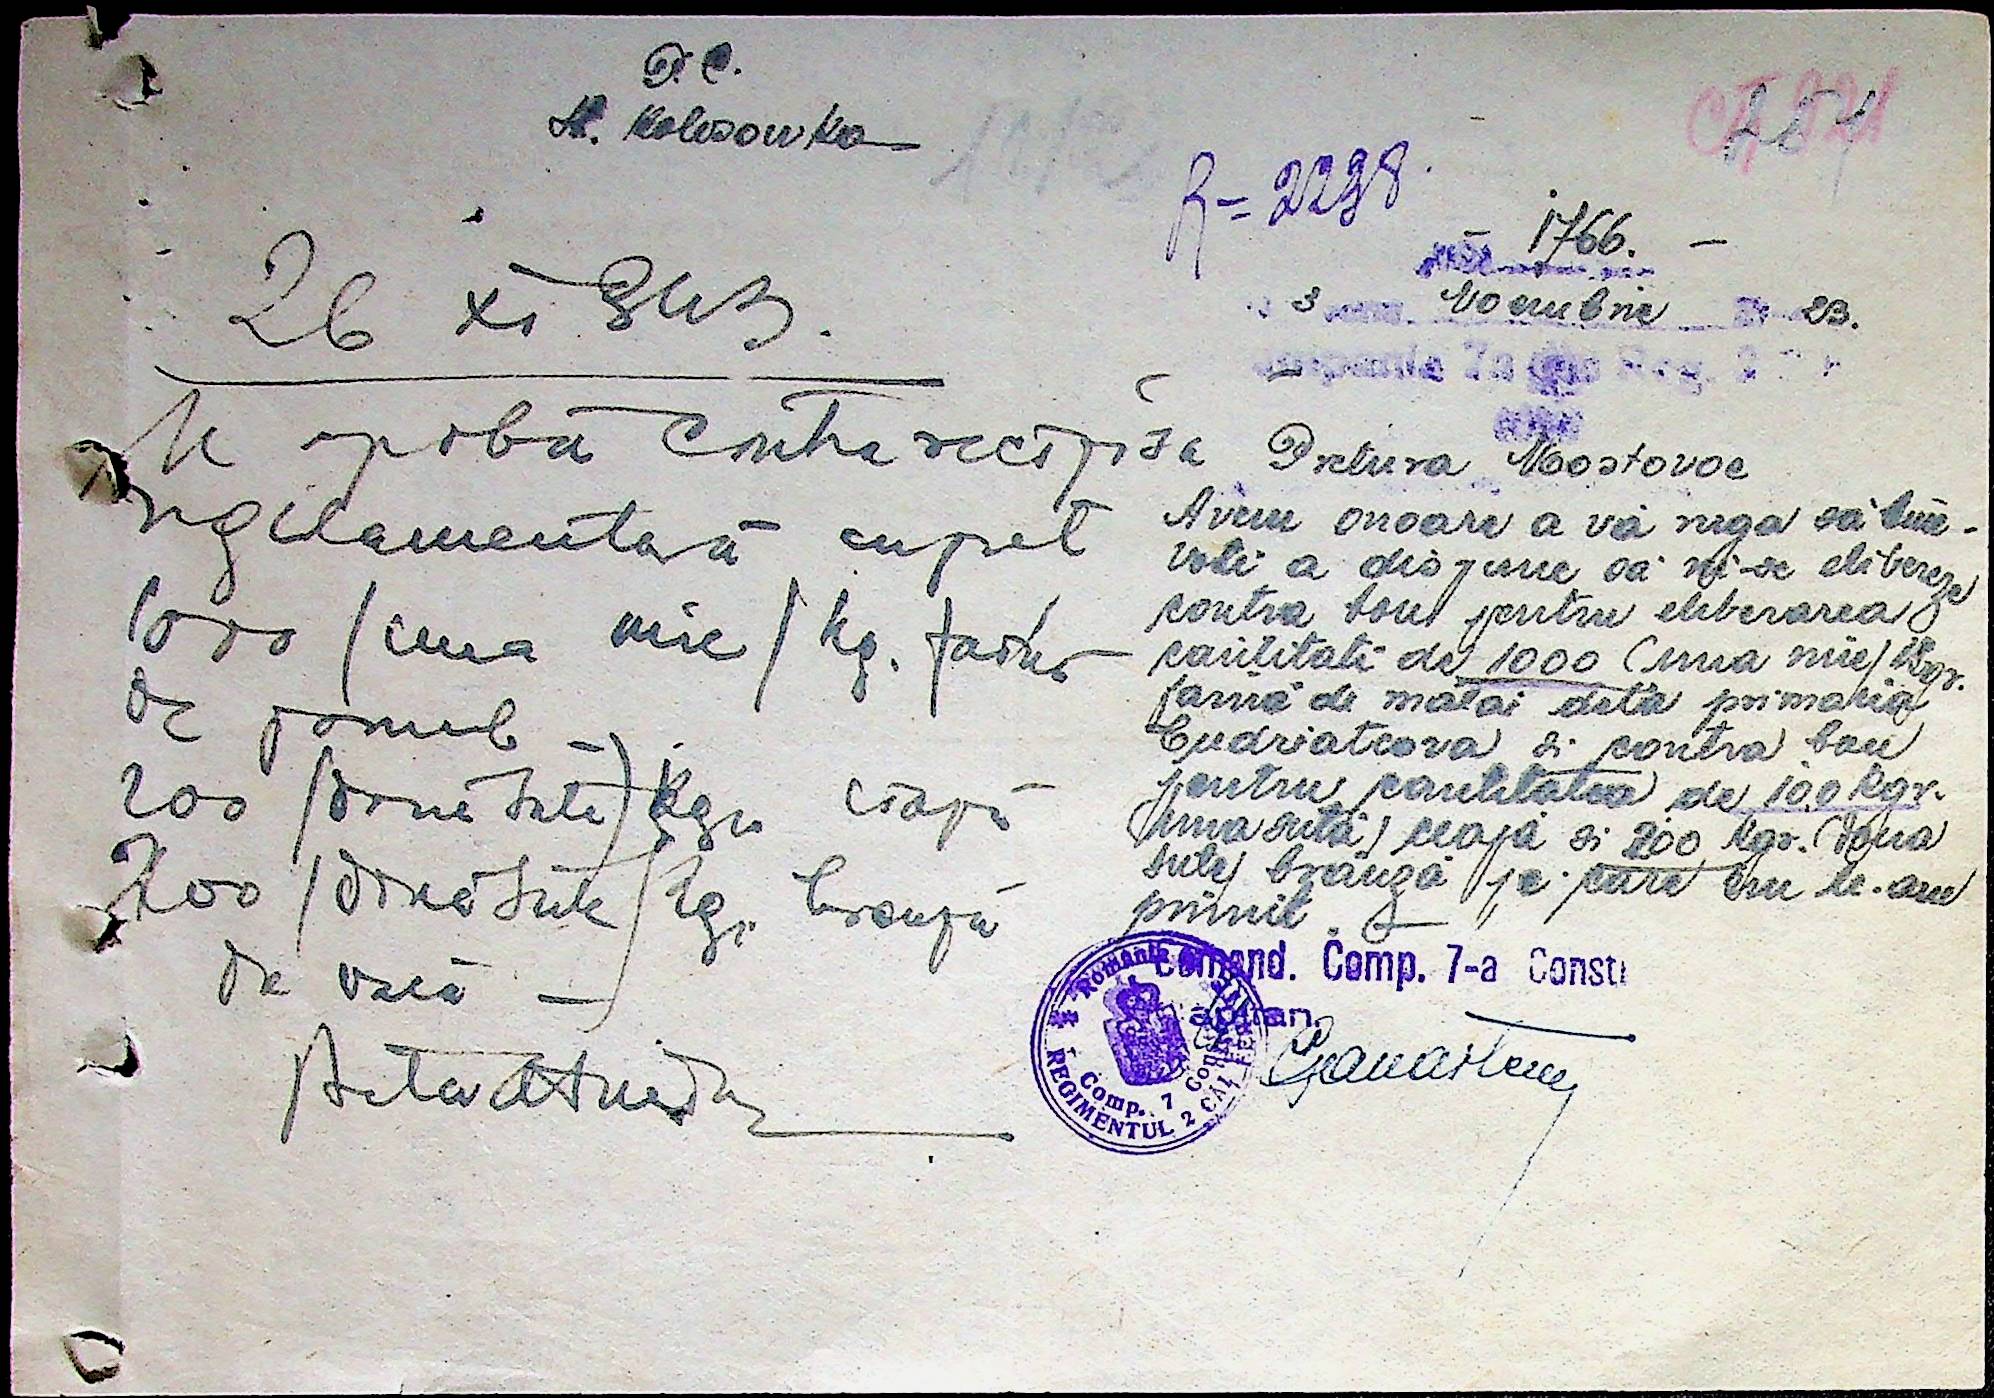 D. C.
St. Kolosowka
R = 2238.
1766.
3 Noembrie 23.
Compania 7a Reg. 2
26 XI
Se aprobă contra recipisa
regulamentară
1000 / una mie / kg.
de porumb
200 / două sute / kgr. ceapă
200 / două sute / kgr. branză
de vacă —
Pretura Mostovoe
Avem onoare a vă ruga să bine-
voiti a dispune să ni-se elibereze
contra bon pentru eliberarea
cantitati de 1000 (una mie) kgr.
faină de mălai dela primaria
Cudriatcova si contra bon
pentru cantitatea de 100 kgr.
(una sută) ceapă si 200 kgr. (doua
sute) brânză pe care nu le-am
primit.
Comand. Comp. 7-a Constr
Capitan.
România
Comp. 7 Con
REGIMENTUL 2 CĂI FE